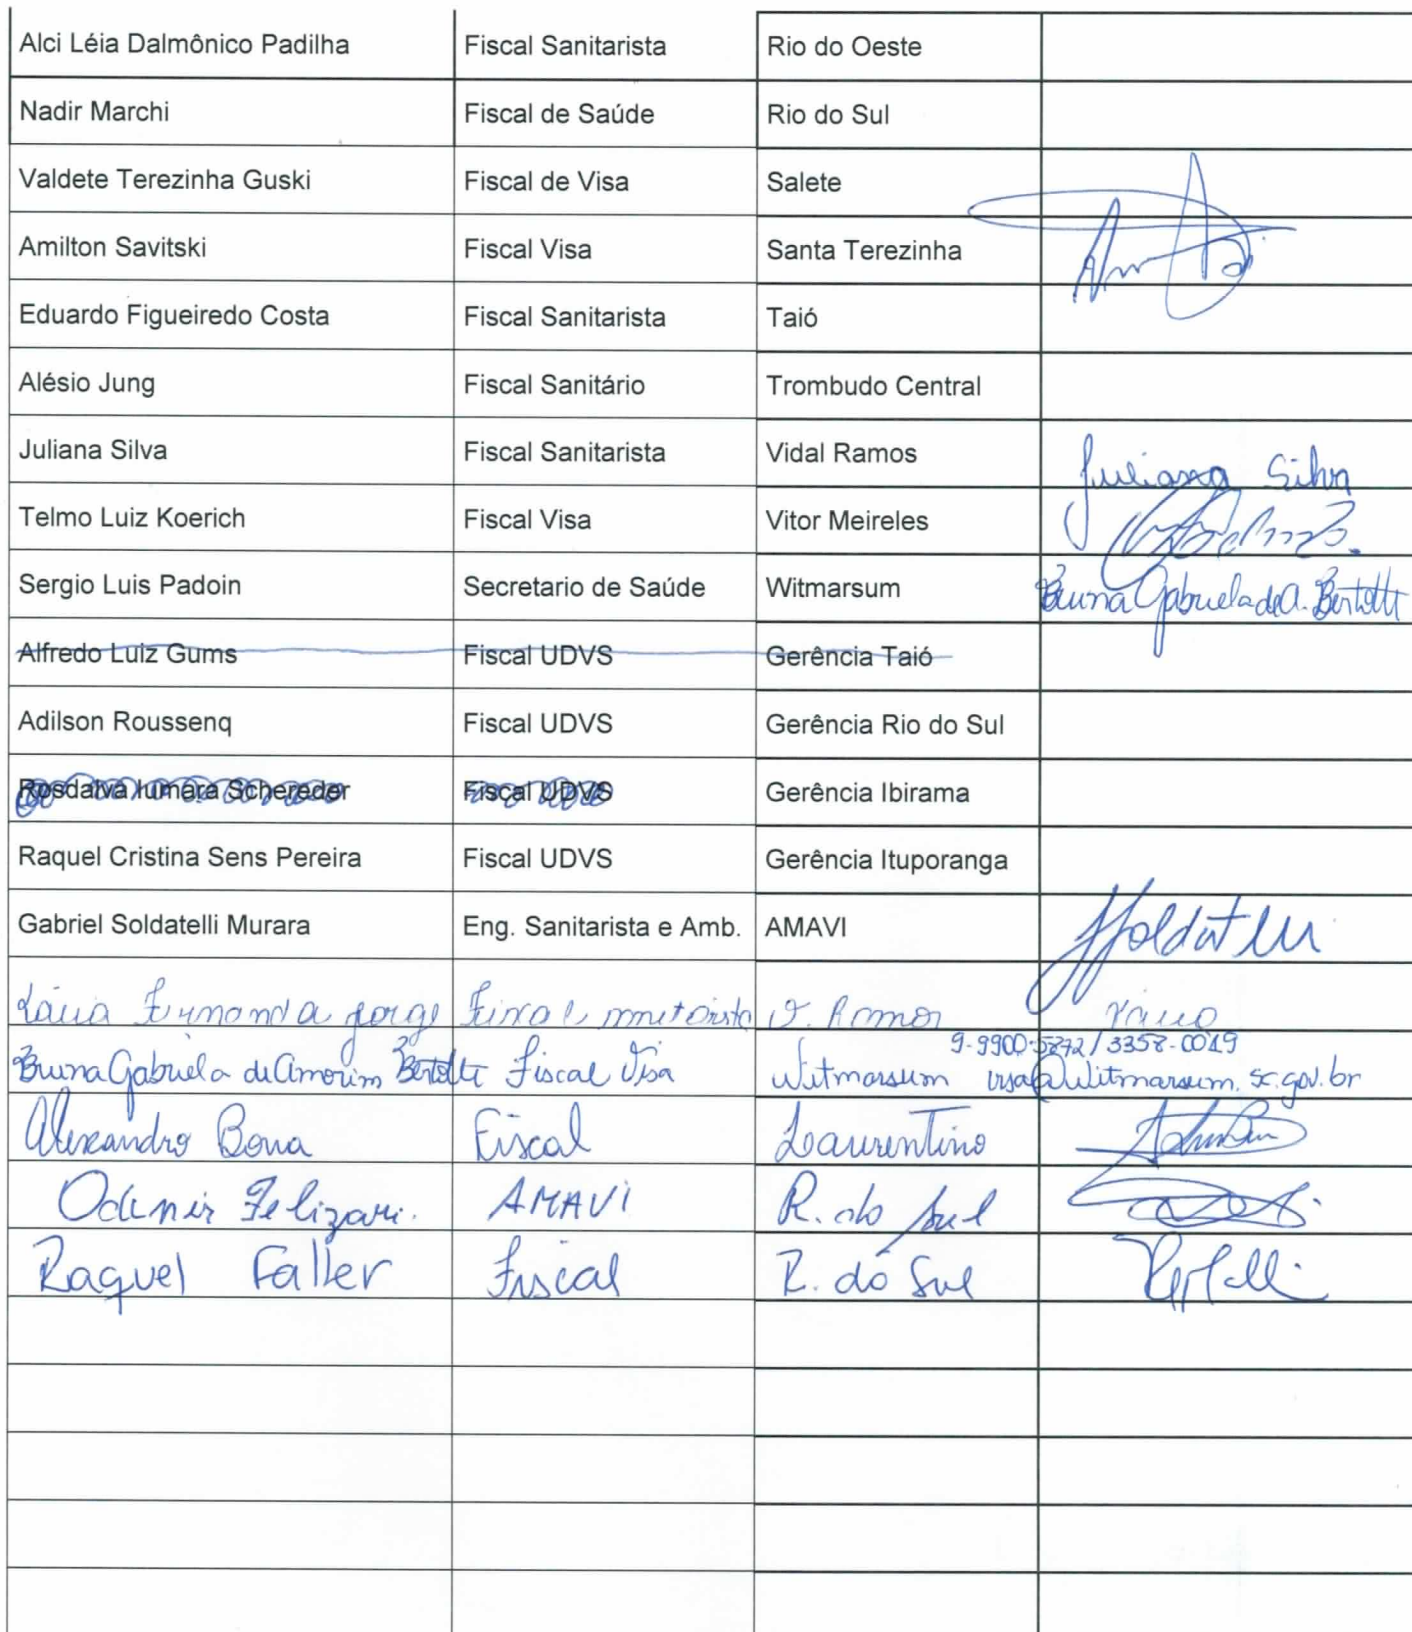 Alci Léia Dalmônico Padilha Fiscal Sanitarista Rio do Oeste
Nadir Marchi Fiscal de Saúde Rio do Sul
Valdete Terezinha Guski Fiscal de Visa Salete
Amilton Savitski Fiscal Visa Santa Terezinha
Eduardo Figueiredo Costa Fiscal Sanitarista Taió
Alésio Jung Fiscal Sanitário Trombudo Central
Juliana Silva Fiscal Sanitarista Vidal Ramos Juliana Silva
Telmo Luiz Koerich Fiscal Visa Vitor Meireles
Sergio Luis Padoin Secretario de Saúde Witmarsum Bruna Gabriela de A. Bertotti
Alfredo Luiz Gums Fiscal UDVS Gerência Taió
Adilson Roussenq Fiscal UDVS Gerência Rio do Sul
Rosdalva Iumara Schereder Fiscal UDVS Gerência Ibirama
Raquel Cristina Sens Pereira Fiscal UDVS Gerência Ituporanga
Gabriel Soldatelli Murara Eng. Sanitarista e Amb. AMAVI
V. Ramos
9-9900-5872 / 3358-0019
Bruna Gabriela de Amorim Bertotti Fiscal Visa Witmarsum visa@witmarsum.sc.gov.br
Alexandro Bona Fiscal Laurentino
Odenir Felizari. AMAVI R. do Sul
Raquel Faller Fiscal R. do Sul